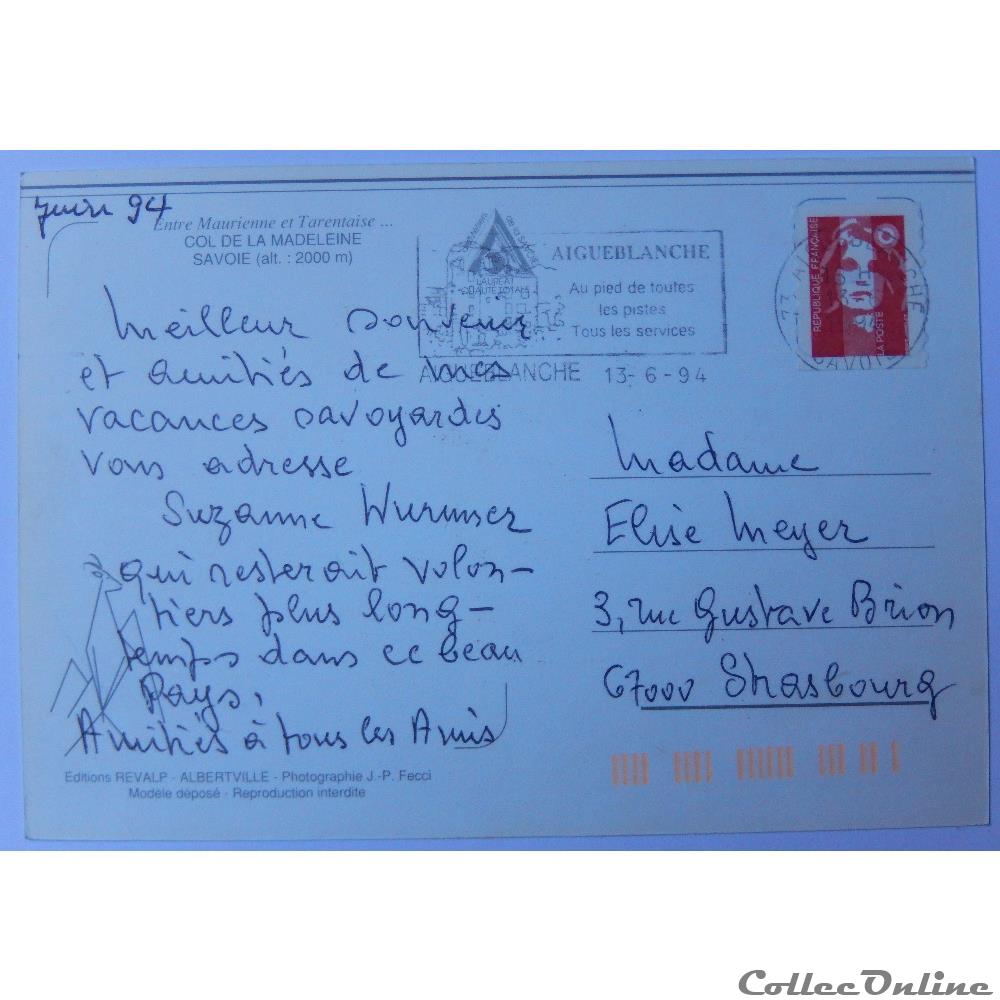 Juin 94
Entre Maurienne et Tarentaise ...
COL DE LA MADELEINE
SAVOIE (alt. : 2000 m)
Meilleur souvenir
et amitiés de mes
vacances savoyardes
vous adresse
Suzanne Wurmser
qui resterait volon-
tiers plus long-
temps dans ce beau
Pays.
Amitiés à tous les Amis
Editions REVALP - ALBERTVILLE - Photographie J.-P. Fecci
Modèle déposé - Reproduction interdite
de la Savoie
LAUREAT
QUALITE TOTALE
AIGUEBLANCHE
Au pied de toutes
les pistes
Tous les services
AIGUEBLANCHE 13-6-94
RÉPUBLIQUE FRANÇAISE
LA POSTE
73 AIGUEBLANCHE
SAVOIE
Madame
Elise Meyer
3, rue Gustave Brion
67000 Strasbourg
CollecOnline